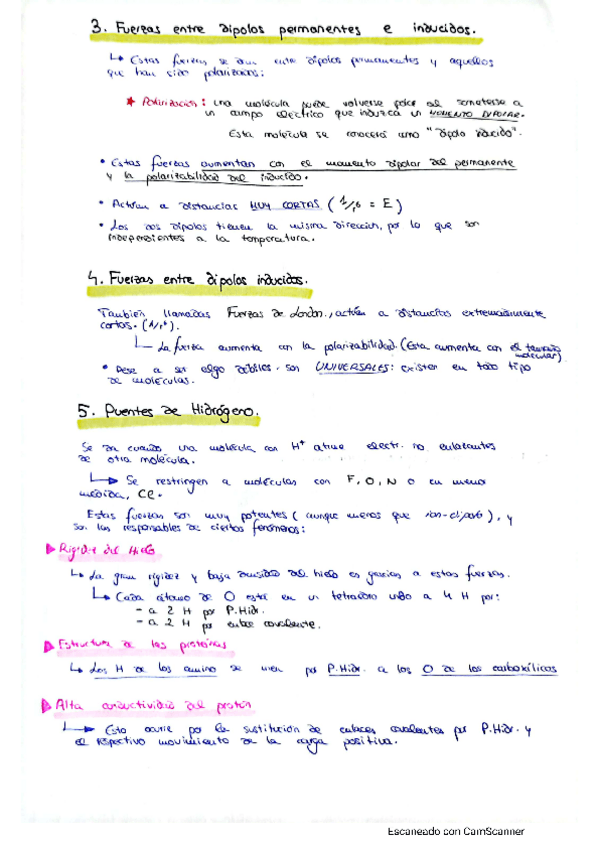 3. Fuerzas entre dipolos permanentes e inducidos.
↳ Estas fuerzas se dan entre dipolos permanentes y aquellos
que han sido polarizados:
★ Polarización: una molécula puede volverse polar al someterse a
un campo electrico que induzca un MOMENTO DIPOLAR.
Esta molécula se conocerá como "dipolo inducido".
• Estas fuerzas aumentan con el momento dipolar del permanente
y la polarizabilidad del inducido.
• Actúan a distancias MUY CORTAS (1/r⁶ = E)
• Los dos dipolos tienen la misma direccion, por lo que son
independientes a la temperatura.
4. Fuerzas entre dipolos inducidos.
Tambien llamadas Fuerzas de London, actúan a distancias extremadamente
cortas. (1/r⁶).
↳ La fuerza aumenta con la polarizabilidad. (Esta aumenta con el tamaño
molecular)
• Pese a ser algo débiles. son UNIVERSALES: existen en todo tipo
de moléculas.
5. Puentes de Hidrógeno.
Se da cuando una molécula con H⁺ atrae electr. no enlazantes
de otra molécula.
↳ Se restringen a moléculas con F, O, N o en menor
medida, Cl.
Estas fuerzas son muy potentes (aunque menos que ion-dipolo), y
son las responsables de ciertos fenómenos:
▷ Rigidez del Hielo
↳ La gran rigidez y baja densidad del hielo es gracias a estas fuerzas.
↳ Cada átomo de O está en un tetraedro unido a 4 H por:
- a 2 H por P.Hidr.
- a 2 H por enlace covalente.
▷ Estructura de las proteínas
↳ Los H de los amino se unen por P.Hidr. a los O de los carboxílicos
▷ Alta conductividad del protón
↳ Esto ocurre por la sustitución de enlaces covalentes por P.Hidr. y
el respectivo movimiento de la carga positiva.
Escaneado con CamScanner